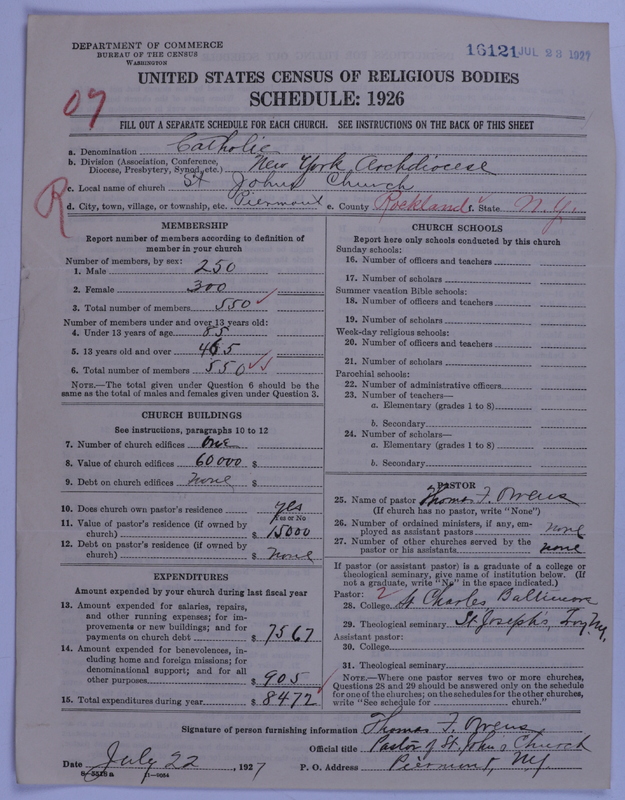 DEPARTMENT OF COMMERCE
BUREAU OF THE CENSUS
WASHINGTON
16121 JUL 23 1927
UNITED STATES CENSUS OF RELIGIOUS BODIES
SCHEDULE: 1926
07
FILL OUT A SEPARATE SCHEDULE FOR EACH CHURCH. SEE INSTRUCTIONS ON THE BACK OF THIS SHEET
a. Denomination Catholic
b. Division (Association, Conference, Diocese, Presbytery, Synod, etc.) New York Archdiocese
c. Local name of church St Johns Church
R
d. City, town, village, or township, etc. Piermont e. County Rockland f. State N.Y.
MEMBERSHIP
Report number of members according to definition of
member in your church
Number of members, by sex:
1. Male 250
2. Female 300
3. Total number of members 550
Number of members under and over 13 years old:
4. Under 13 years of age 85
5. 13 years old and over 465
6. Total number of members 550
NOTE.—The total given under Question 6 should be the
same as the total of males and females given under Question 3.
CHURCH BUILDINGS
See instructions, paragraphs 10 to 12
7. Number of church edifices One
8. Value of church edifices 60000 $
9. Debt on church edifices none $
10. Does church own pastor's residence yes
Yes or No
11. Value of pastor's residence (if owned by
church) $ 15000
12. Debt on pastor's residence (if owned by
church) $ none
EXPENDITURES
Amount expended by your church during last fiscal year
13. Amount expended for salaries, repairs,
and other running expenses; for im-
provements or new buildings; and for
payments on church debt $ 7567
14. Amount expended for benevolences, in-
cluding home and foreign missions; for
denominational support; and for all
other purposes $ 905
15. Total expenditures during year $ 8472
CHURCH SCHOOLS
Report here only schools conducted by this church
Sunday schools:
16. Number of officers and teachers
17. Number of scholars
Summer vacation Bible schools:
18. Number of officers and teachers
19. Number of scholars
Week-day religious schools:
20. Number of officers and teachers
21. Number of scholars
Parochial schools:
22. Number of administrative officers
23. Number of teachers—
a. Elementary (grades 1 to 8)
b. Secondary
24. Number of scholars—
a. Elementary (grades 1 to 8)
b. Secondary
PASTOR
25. Name of pastor Thomas F. Owens
(If church has no pastor, write "None")
26. Number of ordained ministers, if any, em-
ployed as assistant pastors none
27. Number of other churches served by the
pastor or his assistants none
If pastor (or assistant pastor) is a graduate of a college or
theological seminary, give name of institution below. (If
not a graduate, write "No" in the space indicated.)
Pastor: 2
28. College St Charles Baltimore
29. Theological seminary St Joseph's, Troy N.Y.
Assistant pastor:
30. College
31. Theological seminary
NOTE.—Where one pastor serves two or more churches,
Questions 28 and 29 should be answered only on the schedule
for one of the churches; on the schedules for the other churches,
write "See schedule for church."
Signature of person furnishing information Thomas F. Owens
Official title Pastor of St. Johns Church
Date July 22, 1927 P. O. Address Piermont, N.Y.
8-5518a 11-9054